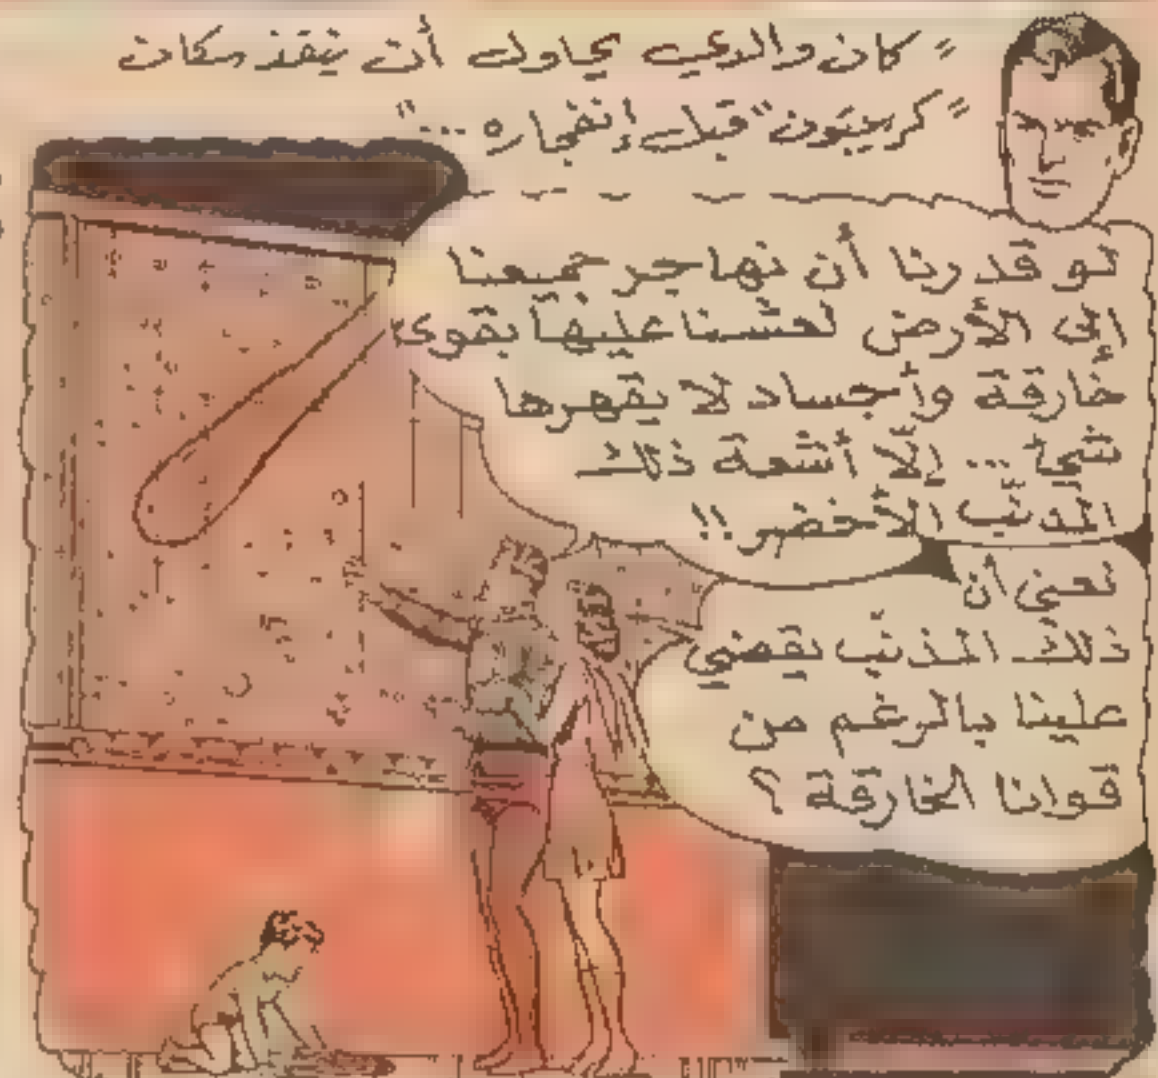 "كان والدي يحاول أن ينقذ سكان
"كريبتون" قبل إنفجاره ..."
لو قدرنا أن نهاجر جميعنا
إلى الأرض لعشنا عليها بقوى
خارقة وأجساد لا يقهرها
شيئا ... إلّا أشعة ذلك
المذنّب الأخضر !!
تعني أن
ذلك المذنّب يقضي
علينا بالرغم من
قوانا الخارقة ؟